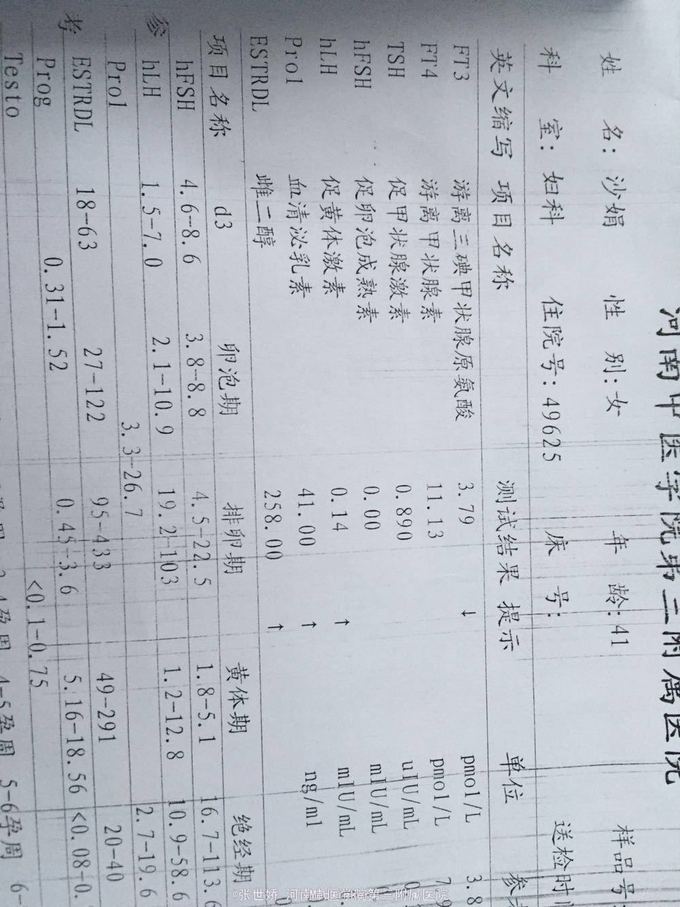 河南中医学院第二附属医院
姓 名: 沙娟 性 别: 女 年 龄: 41 样品号:
科 室: 妇科 住院号: 49625 床 号: 送检时
英文缩写 项目名称 测试结果 提示 单位 参考
FT3 游离三碘甲状腺原氨酸 3.79 ↓ pmol/L 3.8
FT4 游离甲状腺素 11.13 pmol/L 7.9
TSH 促甲状腺激素 0.890 uIU/mL
hFSH 促卵泡成熟素 0.00 mIU/mL
hLH 促黄体激素 0.14 ↑ mIU/mL
Prol 血清泌乳素 41.00 ↑ ng/ml
ESTRDL 雌二醇 258.00 ↑
项目名称 d3 卵泡期 排卵期 黄体期 绝经期
hFSH 4.6-8.6 3.8-8.8 4.5-22.5 1.8-5.1 16.7-113.6
参 hLH 1.5-7.0 2.1-10.9 19.2-103 1.2-12.8 10.9-58.6
Prol 3.3-26.7 2.7-19.6
考 ESTRDL 18-63 27-122 95-433 49-291 20-40
Prog 0.31-1.52 0.45-3.6 5.16-18.56 <0.08-0.
Testo <0.1-0.75
孕周 3-4孕周 4-5孕周 5-6孕周 6-